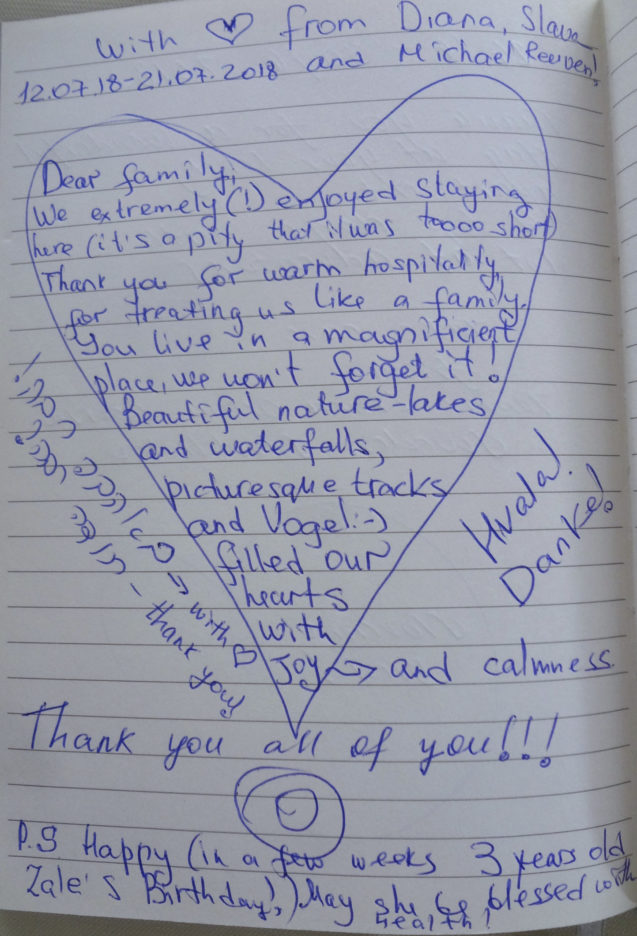 with ♡ from Diana, Slava
12.07.18-21.07.2018 and Michael Reuven!
Dear family,
We extremely (!) enjoyed staying
here (it's a pity that it was toooo short)
Thank you for warm hospitality,
for treating us like a family.
You live in a magnificient
place, we won't forget it!
Beautiful nature-lakes
and waterfalls,
picturesque tracks
and Vogel :-)
filled our
hearts
with
Joy → and calmness.
Hvala!
Danke!
→ with ♡
- thank you!
Thank you all of you!!!
P.S Happy (in a few weeks 3 years old
Zale's Birthday!,) May she be blessed with
health!